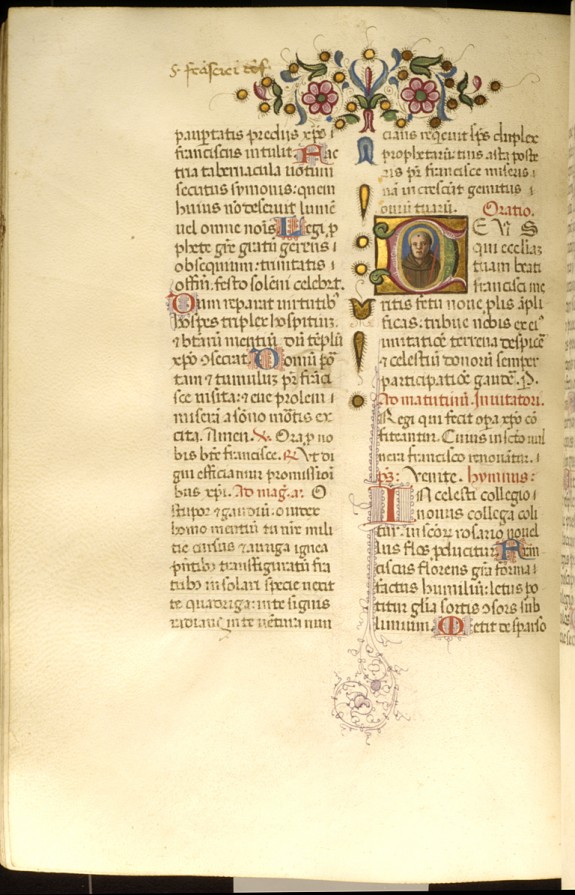 S. frācisci cōf.
paupertatis preclijs xp̄o
franciscus intulit. Hac
tria tabernacula uotum
secutus symonis: quem
huius nō deseruit lumē
uel omne nōis. Legi, p
phete gr̄e gratū gerens
obsequium: trinitatis
offitiū. festo solēni celebrt.
Dum reparat uirtutib̄
hospes triplex hospitiūz.
⁊ btārū mentiū. dū tēplū
xp̄o ↄsecrat. Domū por̄
tam ⁊ tumuluz pr̄ frāci
sce uisita: ⁊ eue prolem
miserā a sōno mōtis ex
cita. Amen. ℣. Ora p no
bis bt̄e francisce. ℟. Ut di
gni efficiamur promissiōi
bus xp̄i. Ad mag. a. O
stupor ⁊ gaudiū. o iudex
homo mentiū tu nr̄e mili
tie cursus ⁊ auriga ignea
p̄ntibꝫ transfiguratū fra
tribꝫ in solari specie uexit
te quadriga: in te signis
radians, in te uentura nun
cians requieuit sp̄s duplex
prophetarū: tuis asta poste
ris pr̄ francisce miseris
nā increscūt gemitus
ouiū tuarū. Oratio.
DEUS
qui eccliaz
tuam beati
francisci me
ritis fetu noue plis āpli
ficas: tribue nobis ex eiꝰ
imitatiōe terrena despicē
⁊ celestiū donorū semper
participatiōe gaudē. P.
Ad matutinū. Inuitatori.
Regi qui fecit opa xp̄o cō
fiteantur. Cuius in scto uul
nera francisco renouātur.
ps: Uenite. hymnus:
IN celesti collegio
nouus collega coli
tur. in scōr rosario nouel
lus flos producitur. Fran
ciscus florens gr̄a forma
factus humiliū: letus po
titur gl̄ia sortis ↄsors sub
limium. Metit de sparso